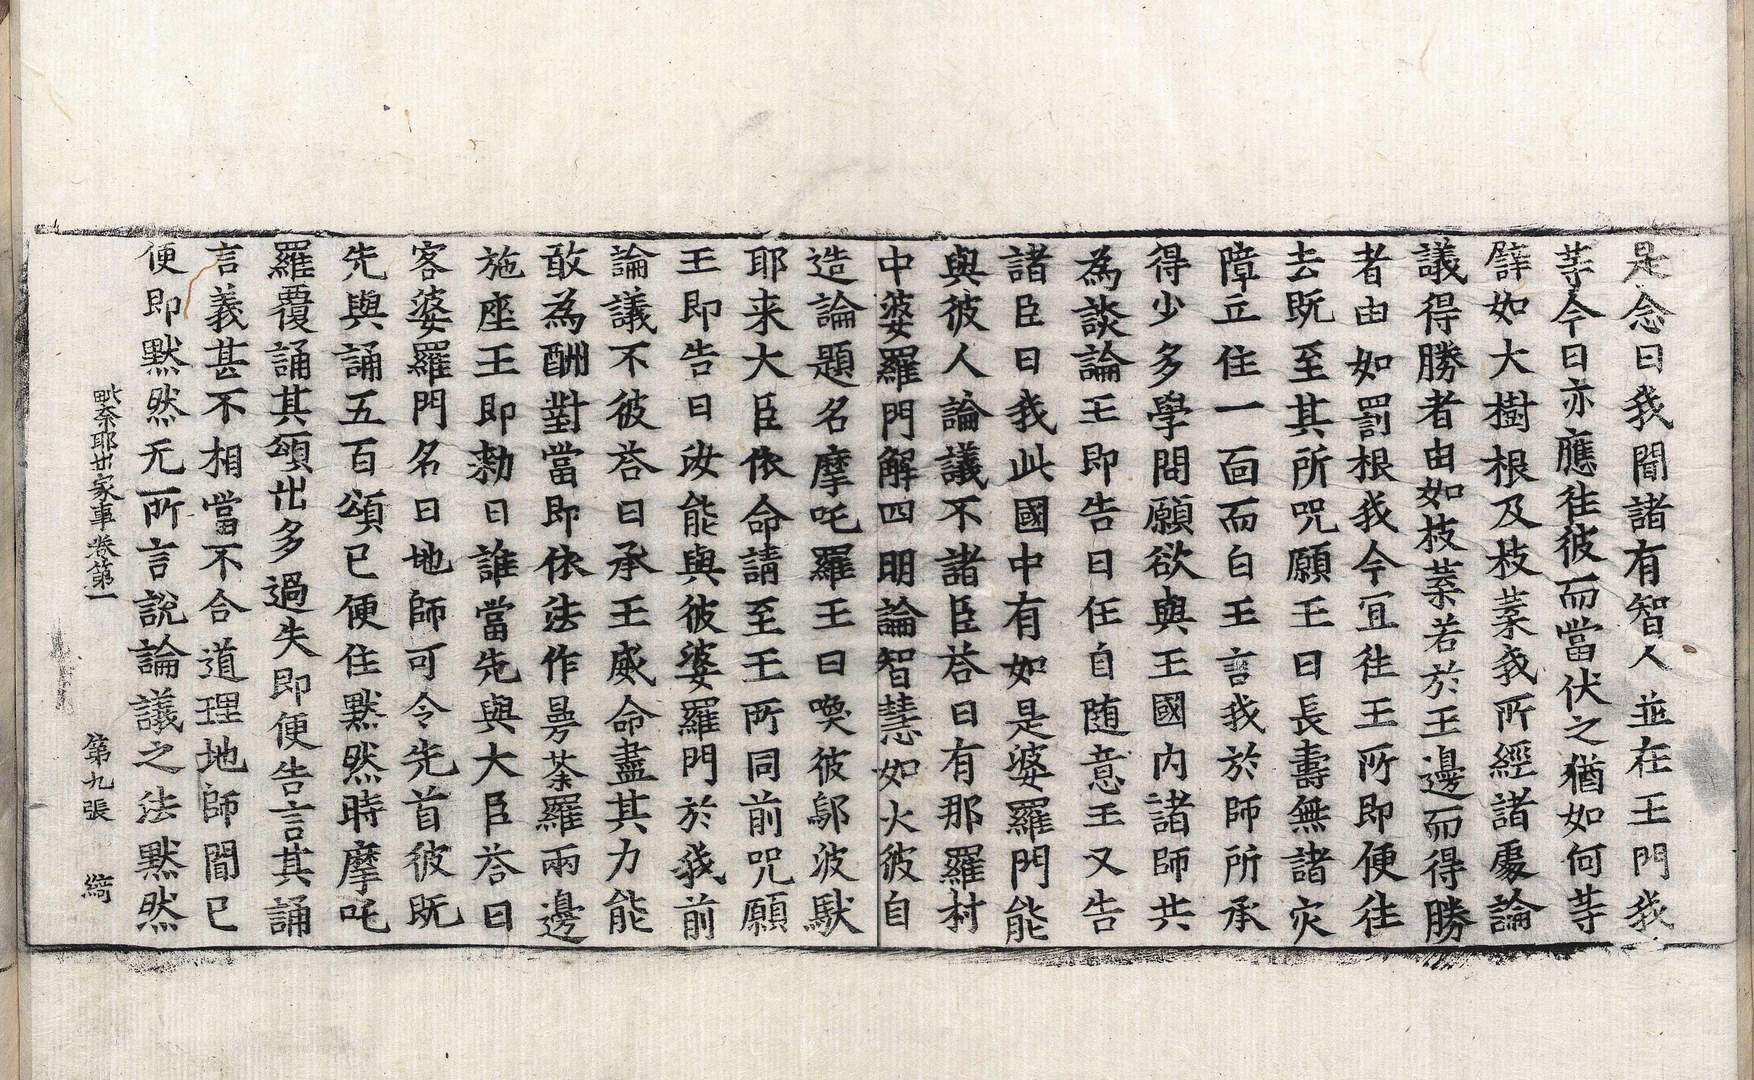 是念曰我聞諸有智人並在王門我
等今日亦應往彼而當伏之猶如何等
譬如大樹根及枝葉我所經諸處論
議得勝者由如枝葉若於王邊而得勝
者由如罰根我今冝往王所即便往
去既至其所呪願王曰長壽無諸灾
障立住一面而白王言我於師所承
得少多學問願欲與王國内諸師共
為談論王即告曰任自随意王又告
諸臣曰我此國中有如是婆羅門能
與彼人論議不諸臣荅曰有那羅村
中婆羅門解四明論智慧如火彼自
造論題名摩吒羅王曰喚彼鄔波馱
耶来大臣依命請至王所同前呪願
王即告曰汝能與彼婆羅門於我前
論議不彼荅曰承王威命盡其力能
敢為酬對當即依法作曼荼羅兩邊
施座王即勑曰誰當先與大臣荅曰
客婆羅門名曰地師可令先首彼既
先與誦五百頌已便住默然時摩吒
羅覆誦其頌出多過失即便告言其誦
言義甚不相當不合道理地師聞已
便即默然无所言說論議之法默然
毗奈耶出家事卷第一 第九張 綺